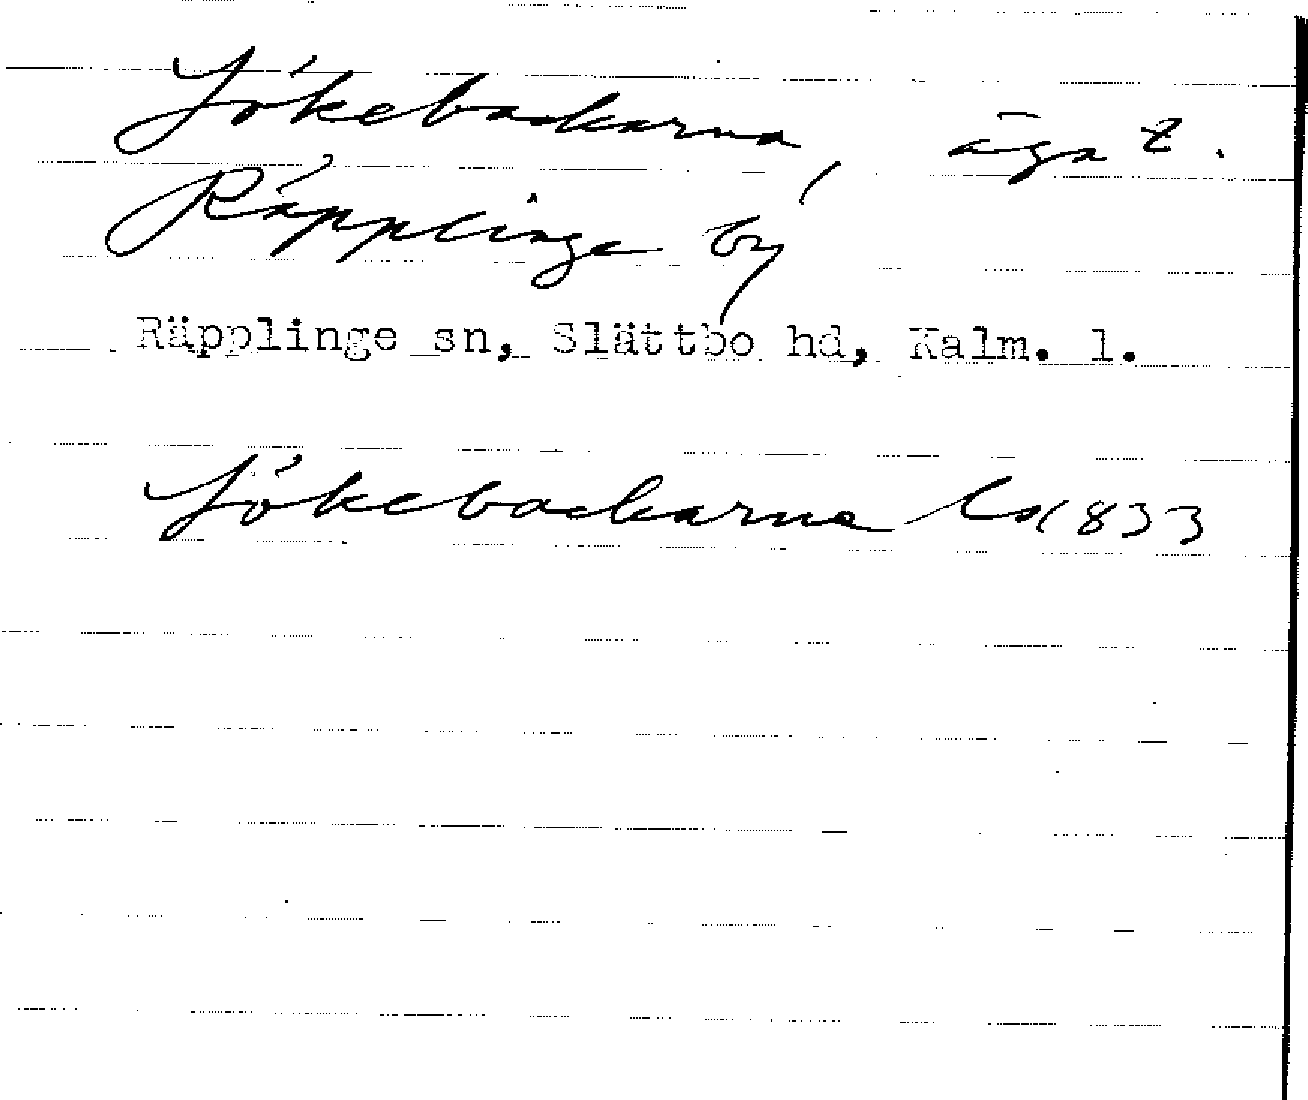 Jökebackarna, äga t.
Räpplinge by
Räpplinge sn, Slättbo hd, Kalm. l.
Jökebackarna Ls 1833